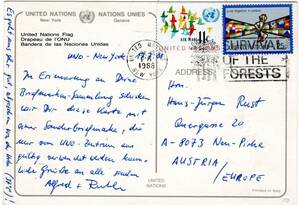 UNITED NATIONS
New York
NATIONS UNIES
Genève
United Nations Flag
Drapeau de l'ONU
Bandera de las Naciones Unidas
UNO - New York,
In Erinnerung an Deine
Briefmarken-Sammlung senden
wir Dir diese Karte mit
einer Sonderbriefmarke, die
nur vom UNO-Zentrum aus
gültig verwendet werden kann.
Liebe Grüße an alle
Alfred + Ruth
UNITED
NATIONS
1988
UNITED NATIONS
SURVIVAL
OF THE
FORESTS
ADDRESS
Hans-Jürgen Rust
Quergasse 20
A-8073 Neu-Pirka
AUSTRIA/
EUROPE
UNITED
NATIONS